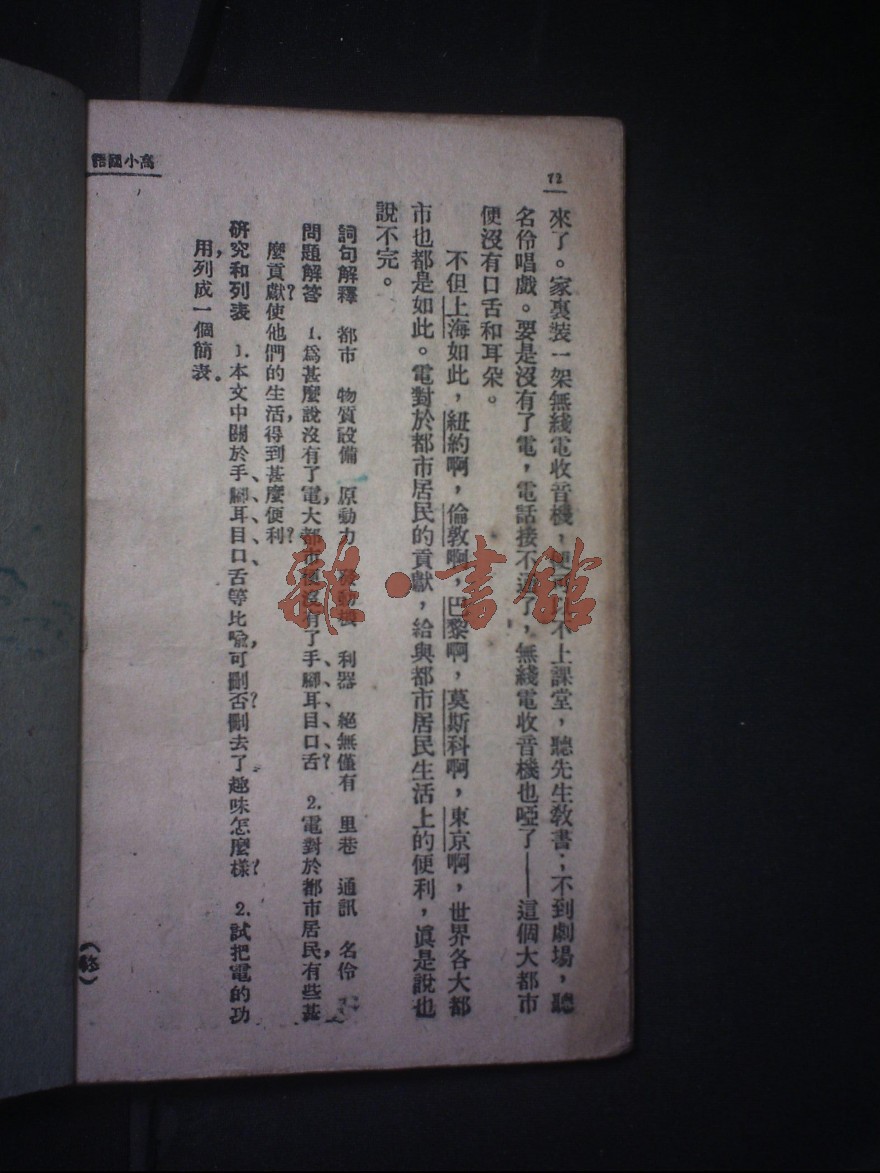 72
高小國語
來了。家裏裝一架無綫電收音機，便可以不上課堂，聽先生敎書；不到劇場，聽
名伶唱戲。要是沒有了電，電話接不通了，無綫電收音機也啞了——這個大都市
便沒有口舌和耳朶。
不但上海如此，紐約啊，倫敦啊，巴黎啊，莫斯科啊，東京啊，世界各大都
市也都是如此。電對於都市居民的貢獻，給與都市居民生活上的便利，眞是說也
說不完。
詞句解釋 都市 物質設備 原動力 發動機 利器 絕無僅有 里巷 通訊 名伶
問題解答 1.爲甚麼說沒有了電，大都市便沒有了手、腳、耳、目、口、舌？ 2.電對於都市居民，有些甚
麼貢獻？使他們的生活，得到甚麼便利？
研究和列表 1.本文中關於手、腳、耳、目、口、舌等比喩，可刪否？刪去了趣味怎麼樣？ 2.試把電的功
用，列成一個簡表。
雜·書館